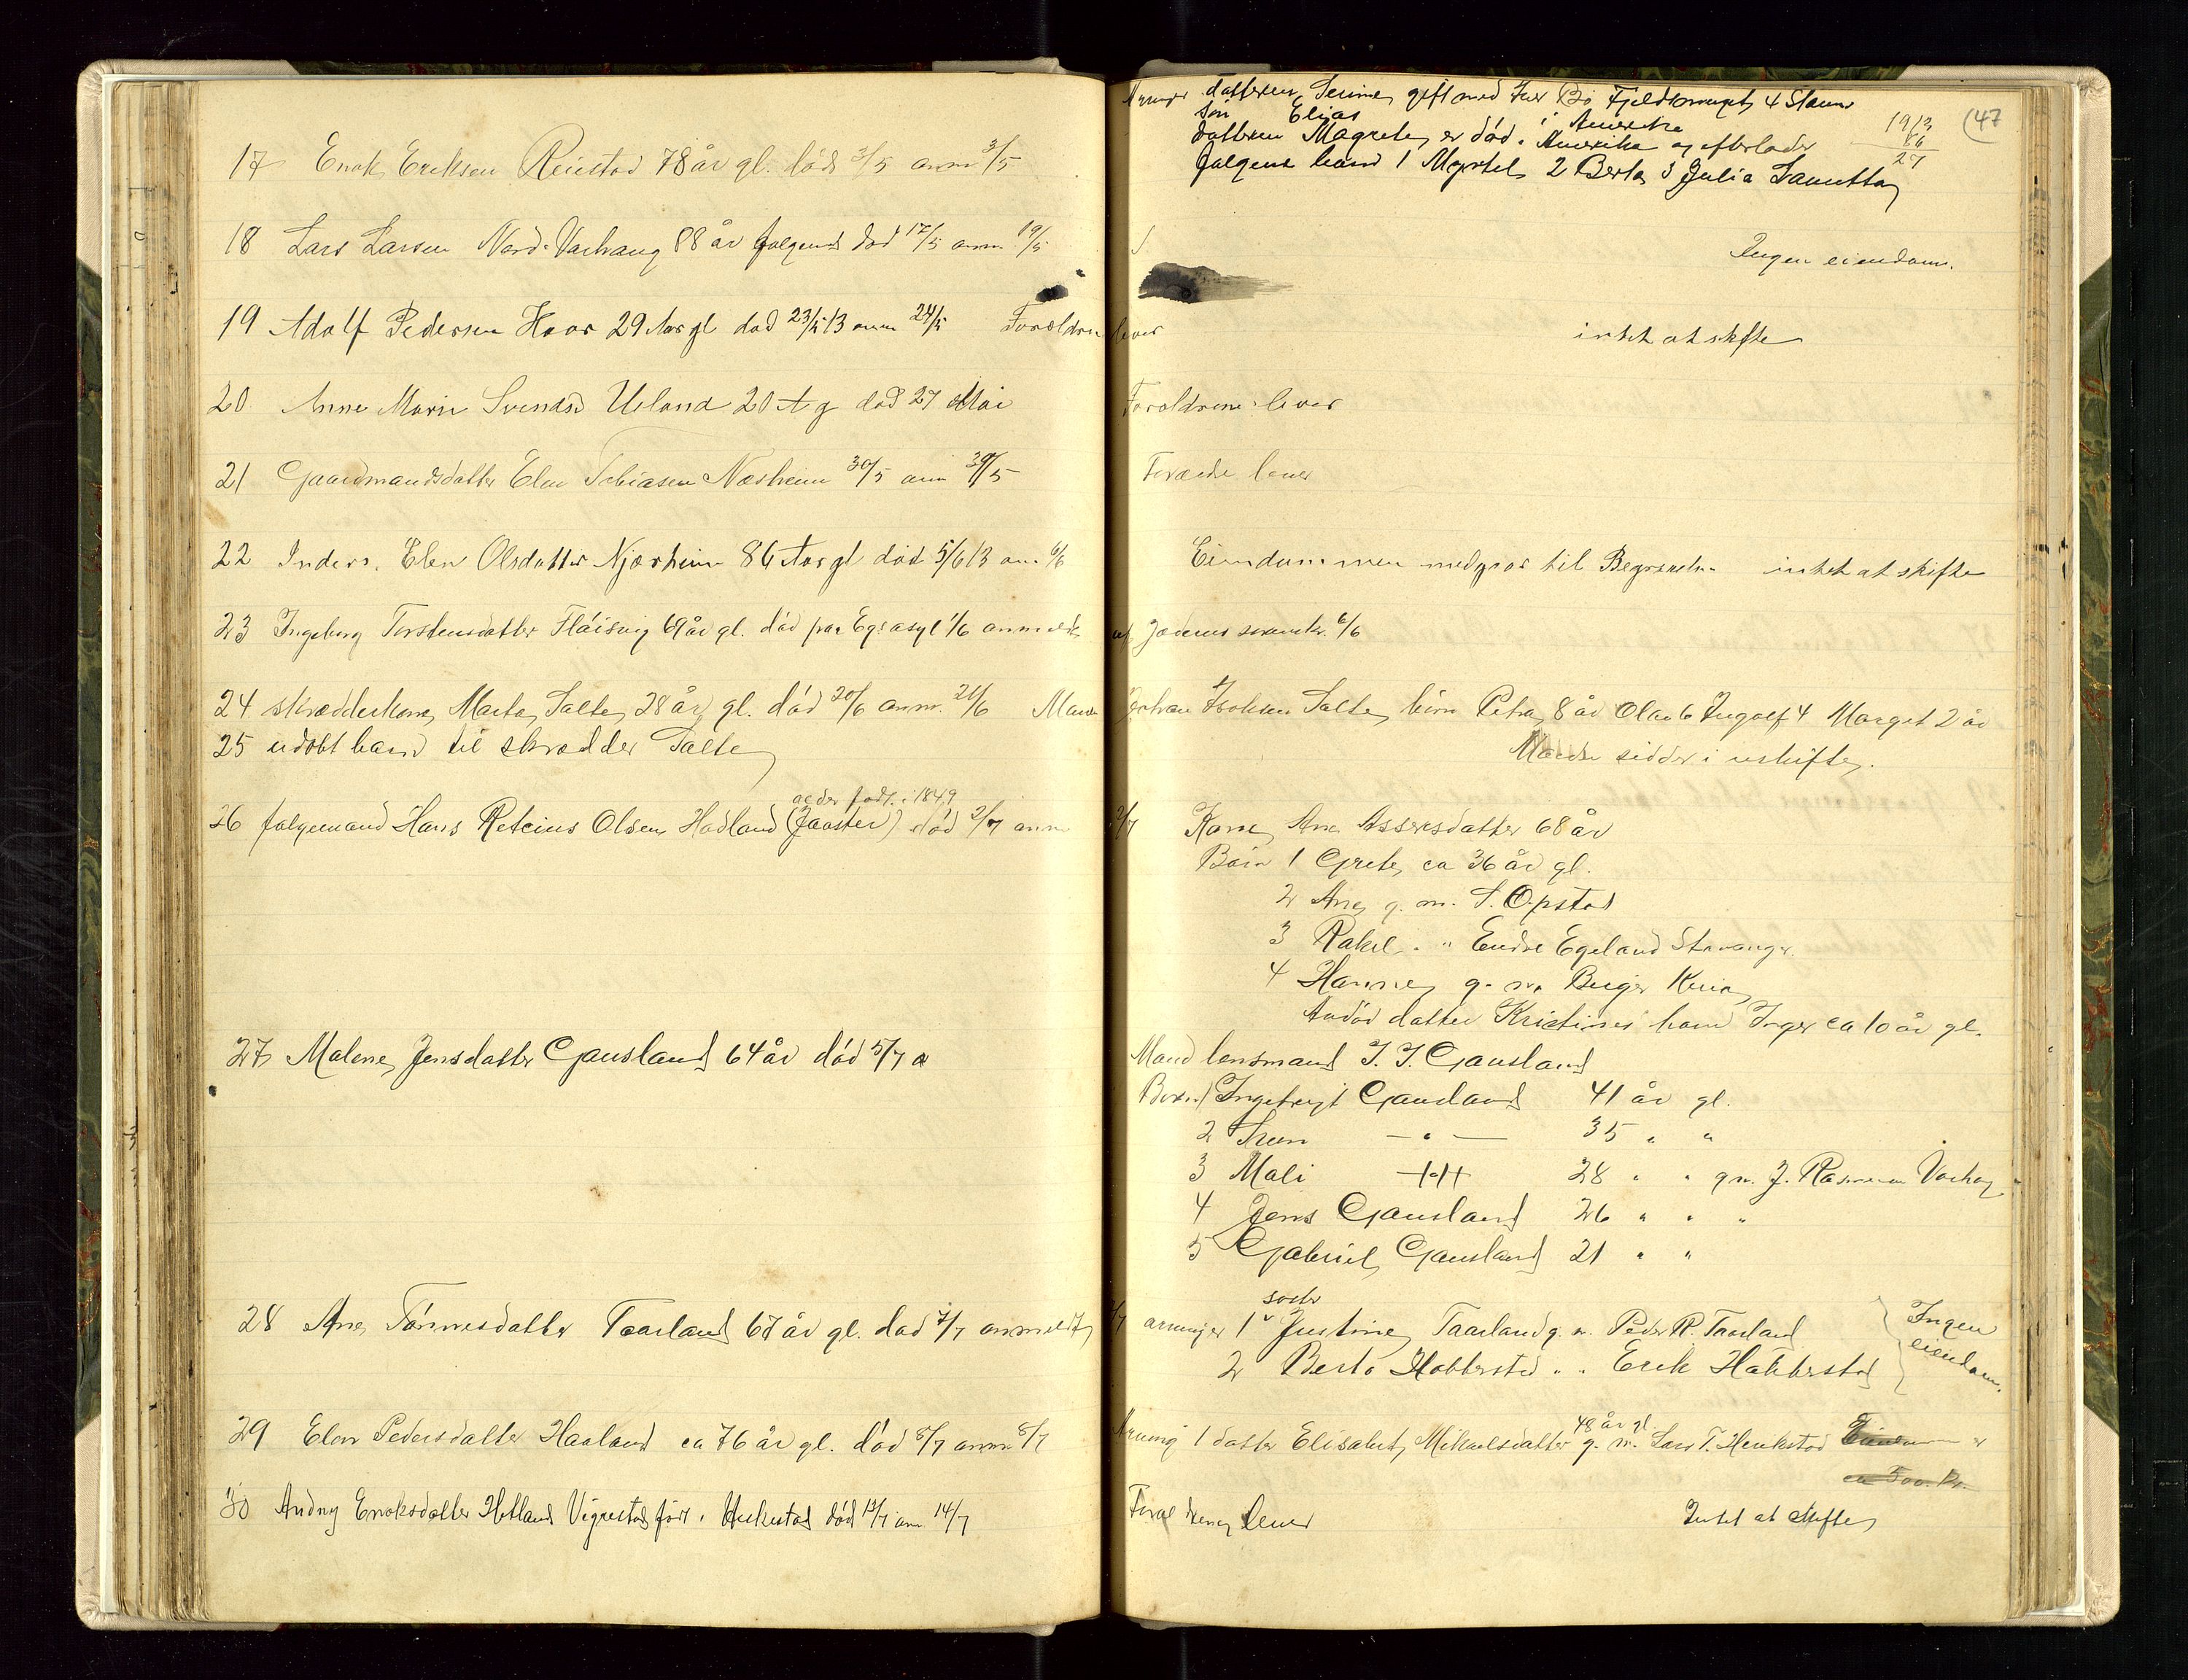 (47
Arvinger datteren Serine gift med Iver Bø 4 Stavn
søn Elias i Amerika
datteren Magrete er død i Amerika og efterlader
følgende barn 1 Myrtel 2 Berta 3 Julia Janetta
1913
66
27
17 Enok Eriksen Reiestad 78 år gl. død 3/5 anm 3/5
18 Lars Larsen Nord-Varhaug 88 år død 17/5 anm. 19/5
Ingen eiendom.
19 Adolf Pedersen Haar 29 Aar gl død 23/5 13 anm 24/5 Forældrene lever
intet at skifte
20 Anne Marie Svendsd Ueland 20 A g død 27 Mai Forældrene lever
21 Gaardmandsdatter Elen Tobiasen Næsheim 30/5 anm 30/5 lever
22 Inders. Elen Olsdatter Njærheim 86 Aar gl død 5/6 13 anm 6/6 Eiendommen medgaar til Begravelse intet at skifte
23 Ingeborg Torstensdatter 69 år gl. død paa Egs asyl 1/6 anmeldt af Jæderens sorenskr. 6/6
24 skrædderkone Marta Salte 28 år gl. død 20/6 anm. 21/6 Mand Salte, børn Petra 8 år Olav 6 Ingolf 4 Marget 2 år
25 udøbt barn til skrædder Salte
Manden sidder i uskifte.
født i 1849
26 følgemand Hans Reteius Olsen Hadland (Jaaster) død 2/7 anm 2/7
Kone Ane Assersdatter 68 år
Børn 1 Grete ca 36 år gl.
2 Ane g. m. S. Opstad
3 Rakel " " Endre Egeland Stavanger
4 Hanne g. m. Birger
Avdød datter Kristines barn Inger ca 10 år gl.
27 Malene Jensdatter Gausland 64 år død 5/7 a
Mand lensmand J. J. Gausland
Børn 1 Ingebrigt Gausland 41 år gl.
2 Sven — " — 35 " "
3 Mali 28 " " g m. J. Rasmussen Varhaug
4 Jens Gausland 26 " " "
5 Gabriel Gausland 21 " "
28 Ane Tønnesdatter Taarland 67 år gl. død 7/7 anmeldt 7/7
søster
arvinger 1 Justine Taarland g. m. Peder R. Taarland
2 Berta Habberstad " " Erik Habberstad
Ingen
eiendom.
29 Elen Pedersdatter Haaland ca 76 år gl. død 8/7 anm 8/7
48 år gl.
Arving 1 datter Elisabet Mikaelsdatter g. m. Lars T. Herikstad
ca 500 Kr.
30 Andny Enoksdatter Hetland Vigrestad født i Herikstad død 13/7 anm 14/7
Forældrene lever Intet at skifte